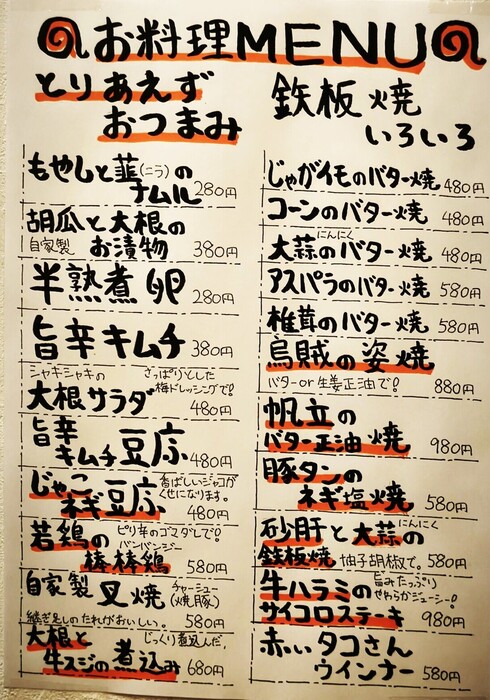 お料理MENU
とりあえず
おつまみ
もやしと韮(ニラ)の
ナムル 280円
胡瓜と大根の
自家製 お漬物 380円
半熟煮卵 280円
旨辛キムチ 380円
シャキシャキの さっぱりとした
梅ドレッシングで!
大根サラダ 480円
旨辛
キムチ豆腐 480円
じゃこ 香ばしいジャコが
くせになります。
ネギ豆腐 480円
若鶏の ピリ辛のゴマダレで!
バンバンジー
棒棒鶏 580円
自家製 叉焼 チャーシュー
(焼豚)
継ぎ足しのたれがおいしい。 580円
大根と じっくり煮込んだ。
牛スジの煮込み 680円
鉄板焼
いろいろ
じゃがイモのバター焼 480円
コーンのバター焼 480円
にんにく
大蒜のバター焼 480円
アスパラのバター焼 580円
椎茸のバター焼 580円
烏賊の姿焼
バターor生姜正油で! 880円
帆立の
バター正油焼 980円
豚タンの
ネギ塩焼 580円
にんにく
砂肝と大蒜の
鉄板焼 柚子胡椒で。 580円
牛ハラミの 旨みたっぷり
やわらかジューシー!
サイコロステーキ 980円
赤いタコさん
ウインナー 580円